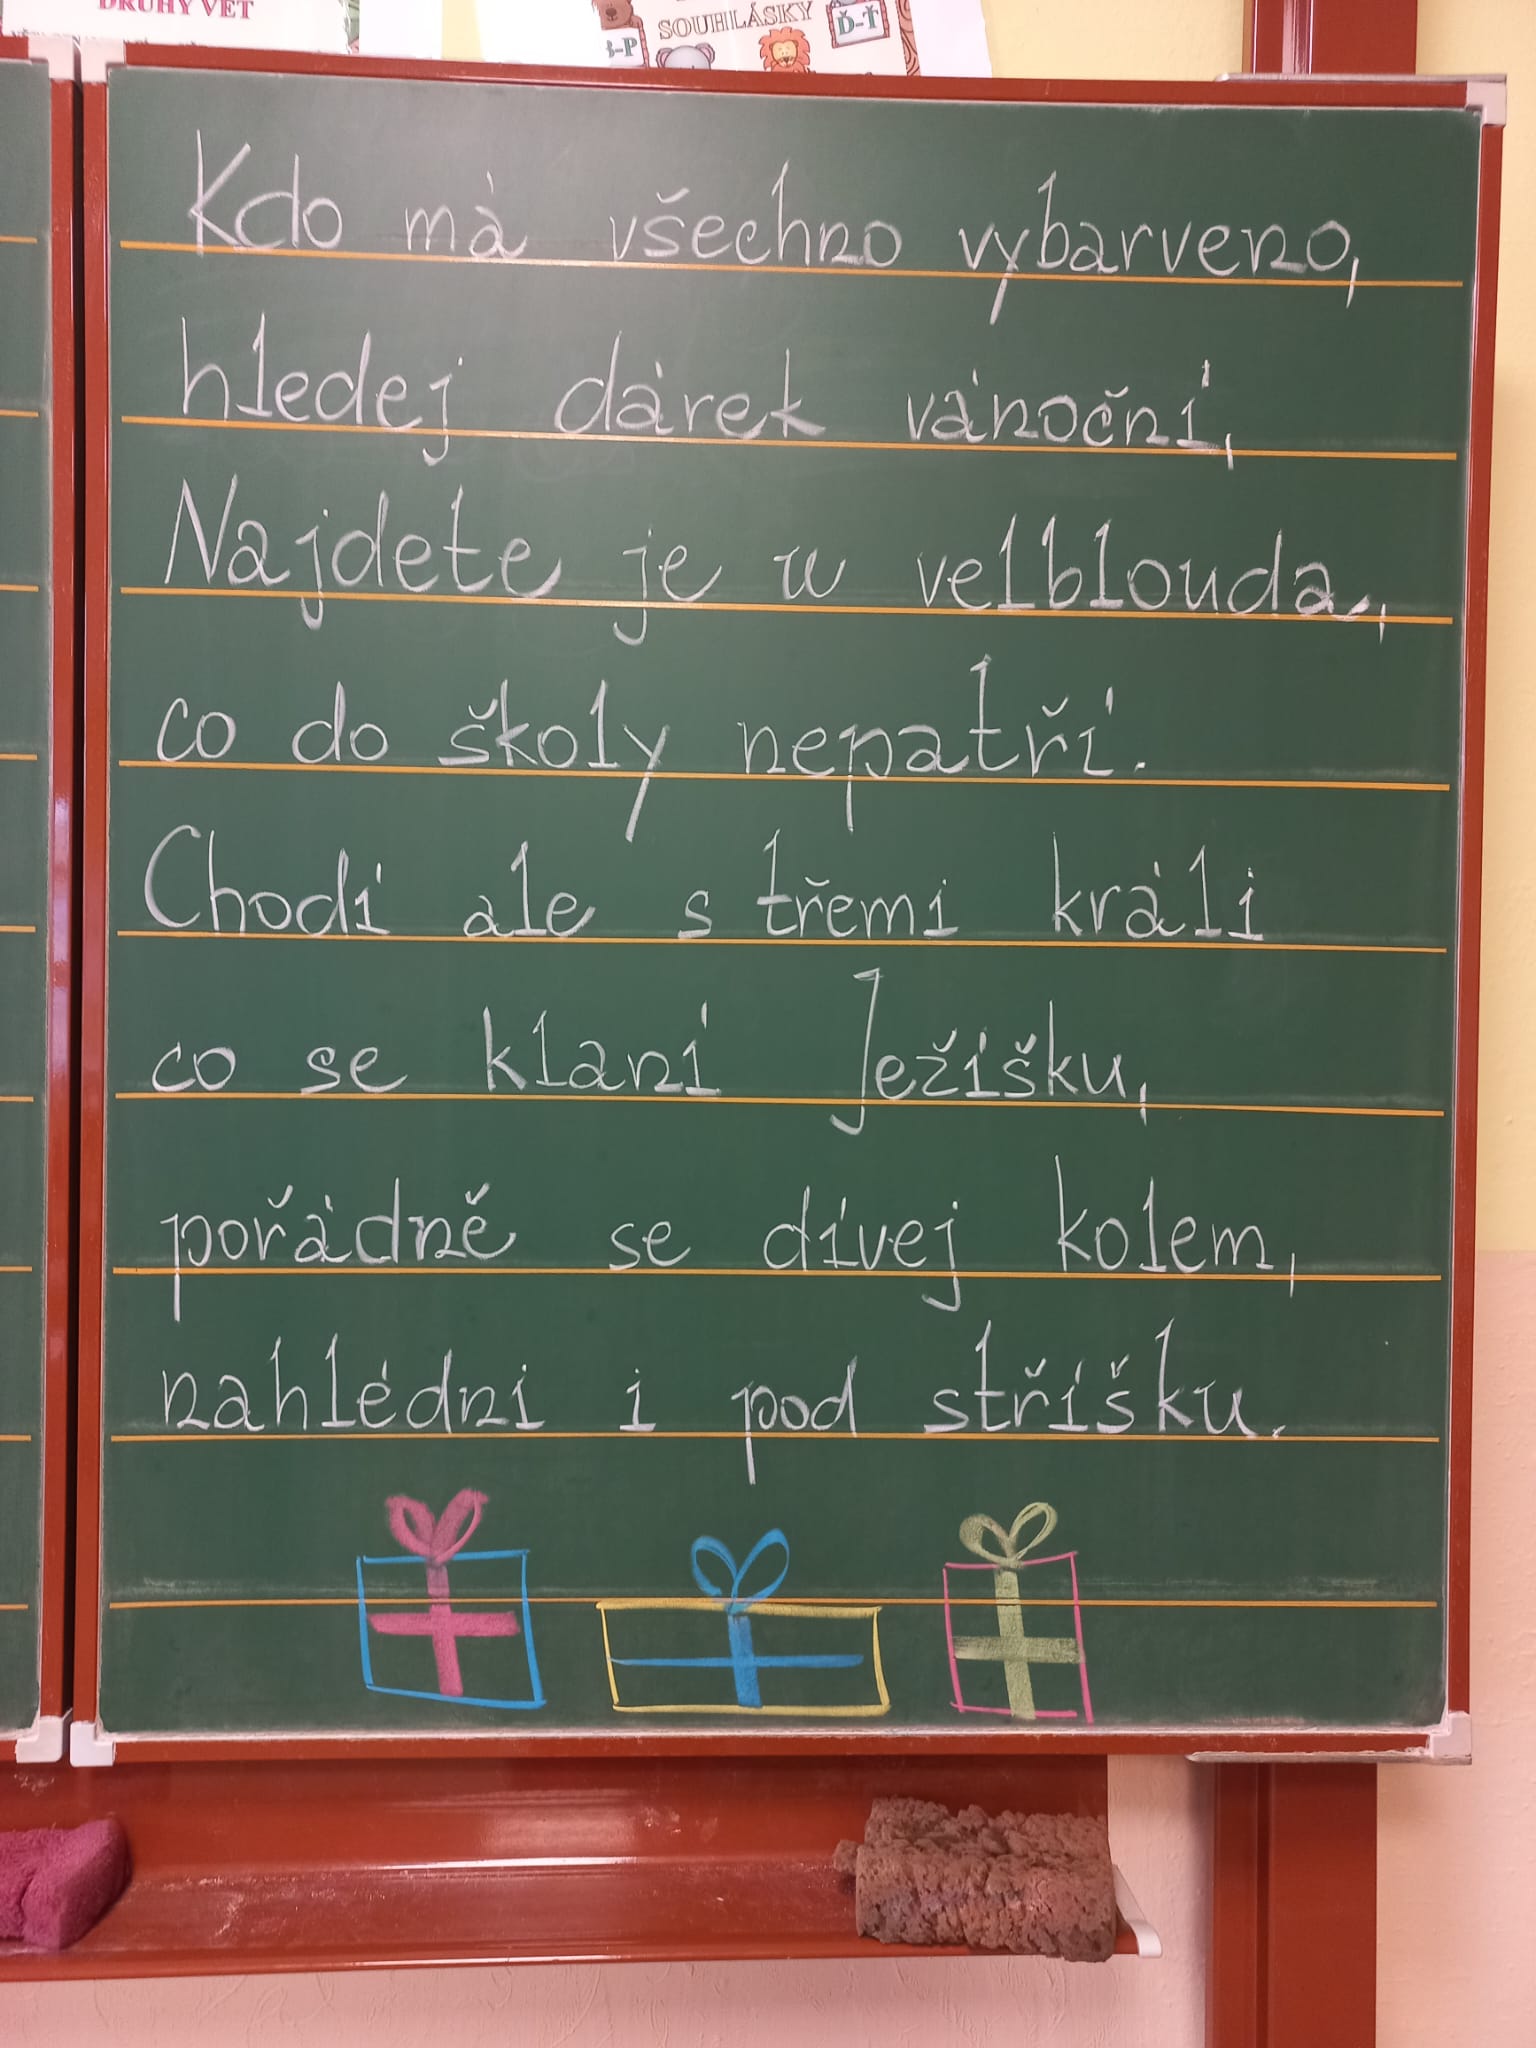 DRUHY VĚT
SOUHLÁSKY
B-P
Ď-Ť
Kdo má všechno vybarveno,
hledej dárek vánoční,
Najdete je u velblouda,
co do školy nepatří.
Chodí ale s třemi králi
co se klaní Ježíšku,
pořádně se dívej kolem,
nahlédni i pod stříšku.